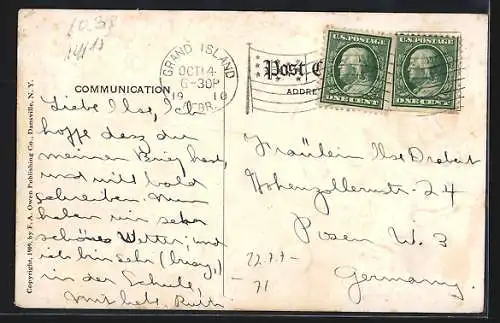 10.38
GRAND ISLAND
OCT 14
6-30P
19 10
NEBR.
Post C
COMMUNICATION
ADDRE
U.S. POSTAGE
ONE CENT
U.S. POSTAGE
ONE CENT
Liebe Ilse, Ich
hoffe dasz du
meinen Brief hast,
und will bald
schreiben. Nun
haben wir sehr
schönes Wetter; und
ich bin sehr (busy,)
in der Schule,
Mit herz. Ruth
Fräulein Ilse
Hohenzollernstr. 24
Posen W. 3
Germany.
22.7.7-
-71
Copyright, 1909, by F. A. Owen Publishing Co., Dansville, N. Y.